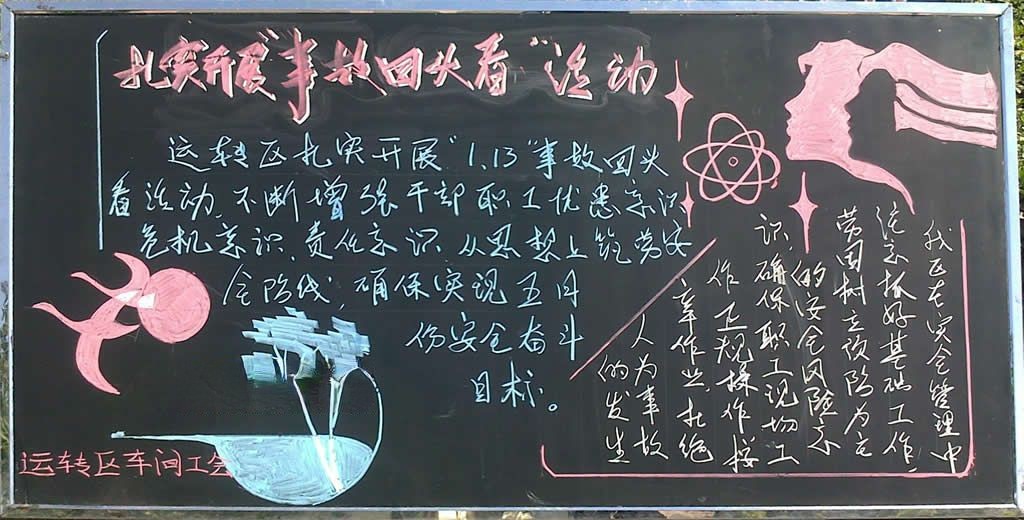 扎实开展"事故回头看"活动
运转区扎实开展"1.13"事故回头
看活动,不断增强干部职工忧患意识
危机意识、责任意识,从思想上筑劳安
全防线,确保实现五月
份安全奋斗
目标。
我区在安全管理中
注意抓好基础工作,
劳固树立预防为主
的安全风险意
识,确保职工现场工
作正规操作按
章作业,杜绝
人为事故
的发生
运转区车间工会